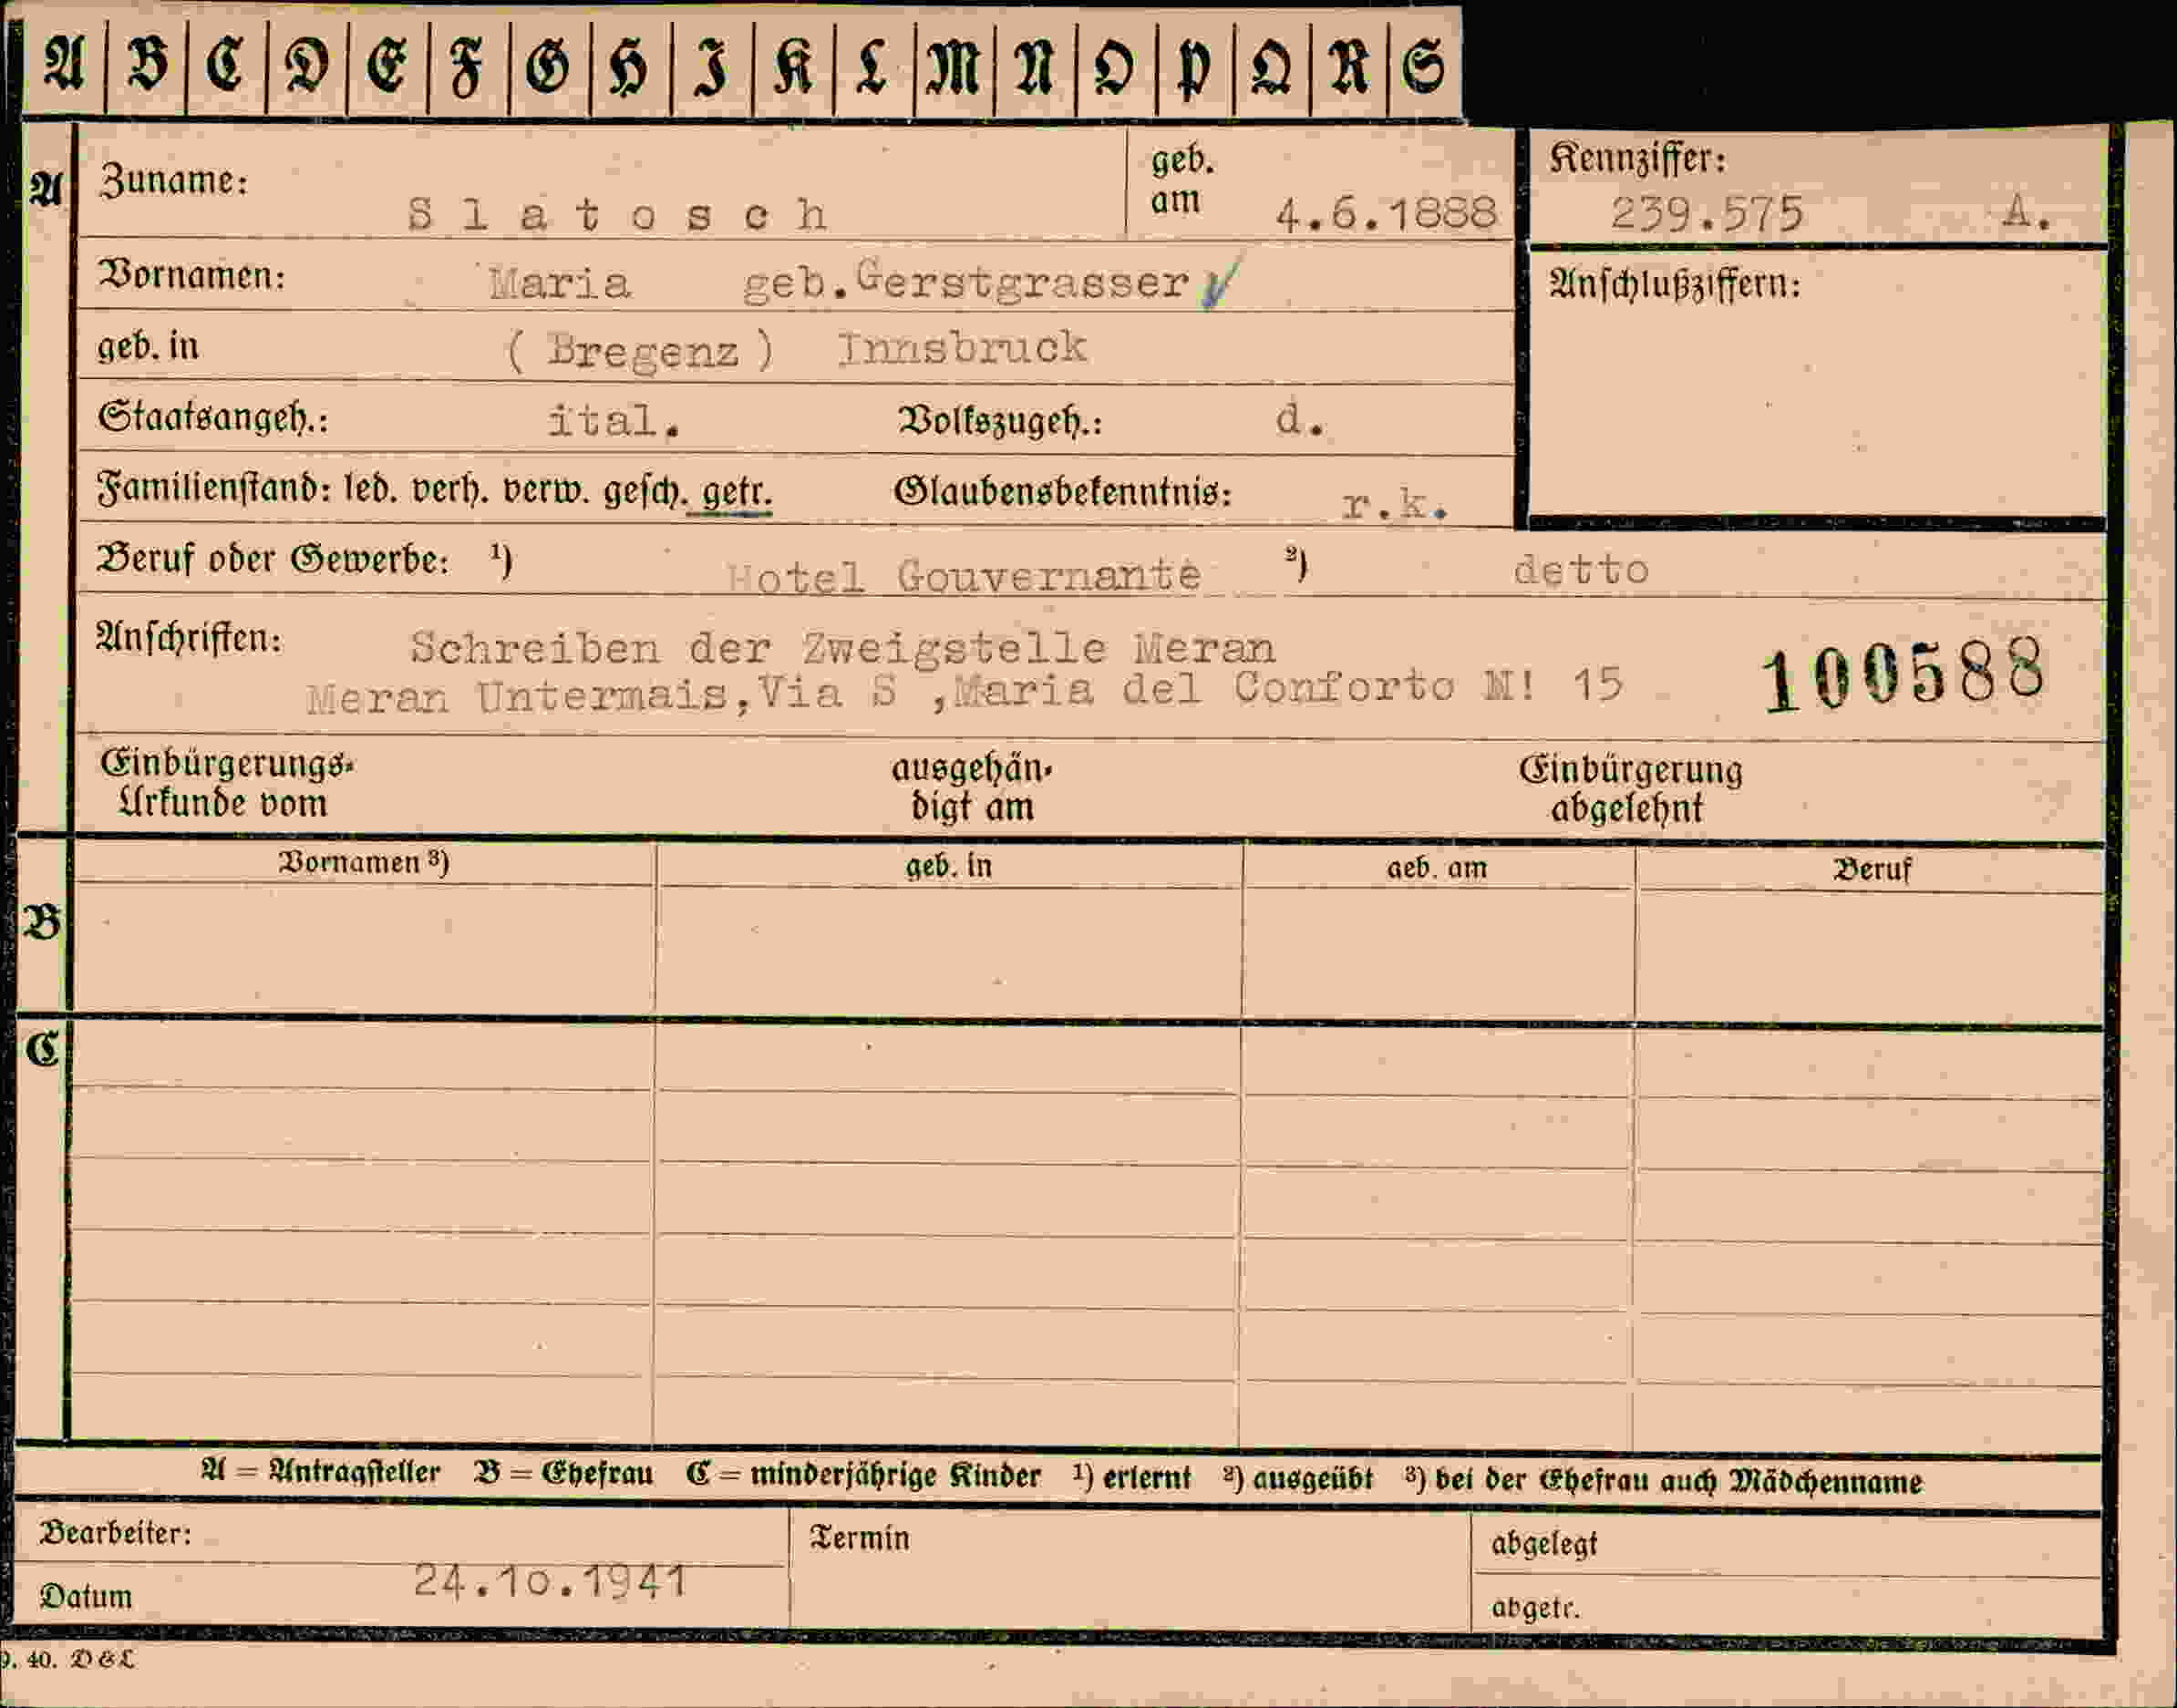 A B C D E F G H I K L M N O P Q R S
A Zuname: Slatosch geb. am 4.6.1888 Kennziffer: 239.575 A.
Vornamen: Maria geb.Gerstgrasser Anschlußziffern:
geb. in (Bregenz) Innsbruck
Staatsangeh.: ital. Volkszugeh.: d.
Familienstand: led. verh. verw. gesch. getr. Glaubensbekenntnis: r.k.
Beruf oder Gewerbe: ¹) Hotel Gouvernante ²) detto
Anschriften: Schreiben der Zweigstelle Meran
Meran Untermais,Via S ,Maria del Conforto N! 15 100588
Einbürgerungs- ausgehän- Einbürgerung
Urkunde vom digt am abgelehnt
Vornamen ³) geb. in geb. am Beruf
B
C
A = Antragsteller B = Ehefrau C = minderjährige Kinder ¹) erlernt ²) ausgeübt ³) bei der Ehefrau auch Mädchenname
Bearbeiter: Termin abgelegt
Datum 24.10.1941 abgetr.
9. 40. D & L